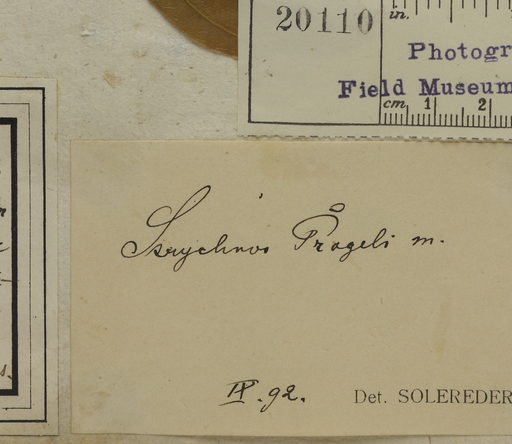 20110
in.
Photogr
Field Museum
cm 1 2
Strychnos Progeli m.
IX. 92.
Det. SOLEREDER